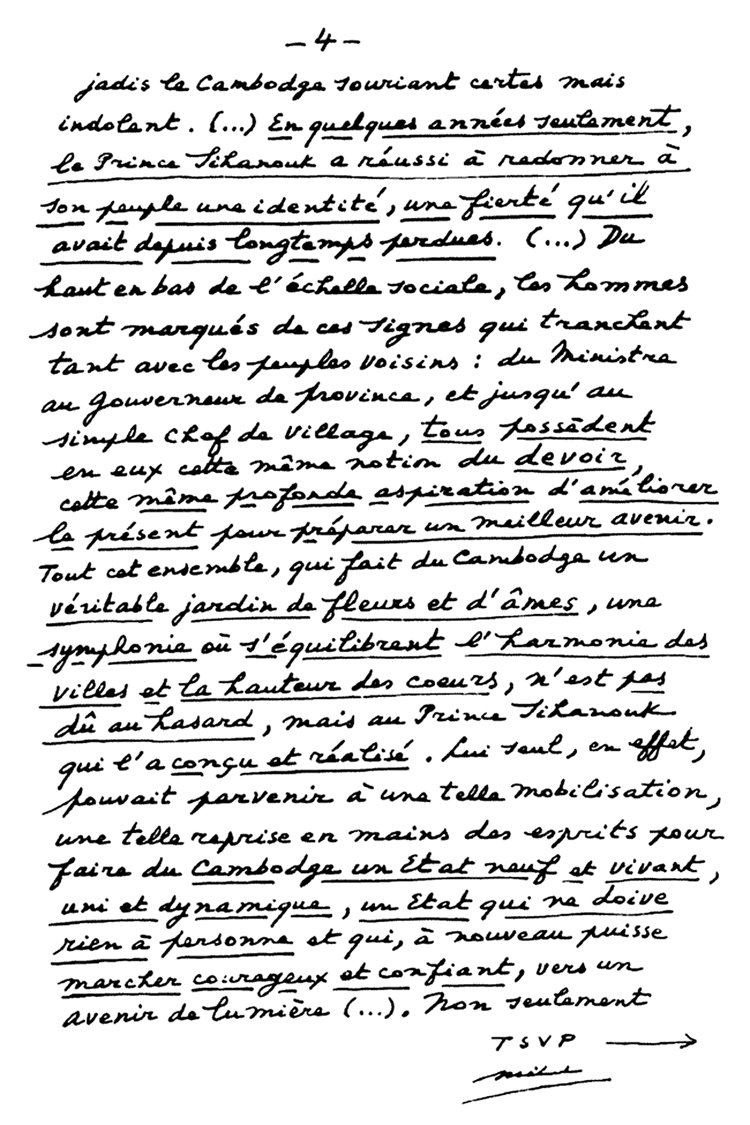 - 4 -
jadis le Cambodge souriant certes mais
indolent. (...) En quelques années seulement,
le Prince Sihanouk a réussi à redonner à
son peuple une identité, une fierté qu'il
avait depuis longtemps perdues. (...) Du
haut en bas de l'échelle sociale, les hommes
sont marqués de ces signes qui tranchent
tant avec les peuples voisins : du Ministre
au Gouverneur de province, et jusqu'au
simple Chef de Village, tous possèdent
en eux cette même notion du devoir,
cette même profonde aspiration d'améliorer
le présent pour préparer un meilleur avenir.
Tout cet ensemble, qui fait du Cambodge un
véritable jardin de fleurs et d'âmes, une
symphonie où s'équilibrent l'harmonie des
villes et la hauteur des coeurs, n'est pas
dû au hasard, mais au Prince Sihanouk
qui l'a conçu et réalisé. Lui seul, en effet,
pouvait parvenir à une telle mobilisation,
une telle reprise en mains des esprits pour
faire du Cambodge un Etat neuf et vivant,
uni et dynamique, un Etat qui ne doive
rien à personne et qui, à nouveau puisse
marcher courageux et confiant, vers un
avenir de lumière (...). Non seulement
TSVP →